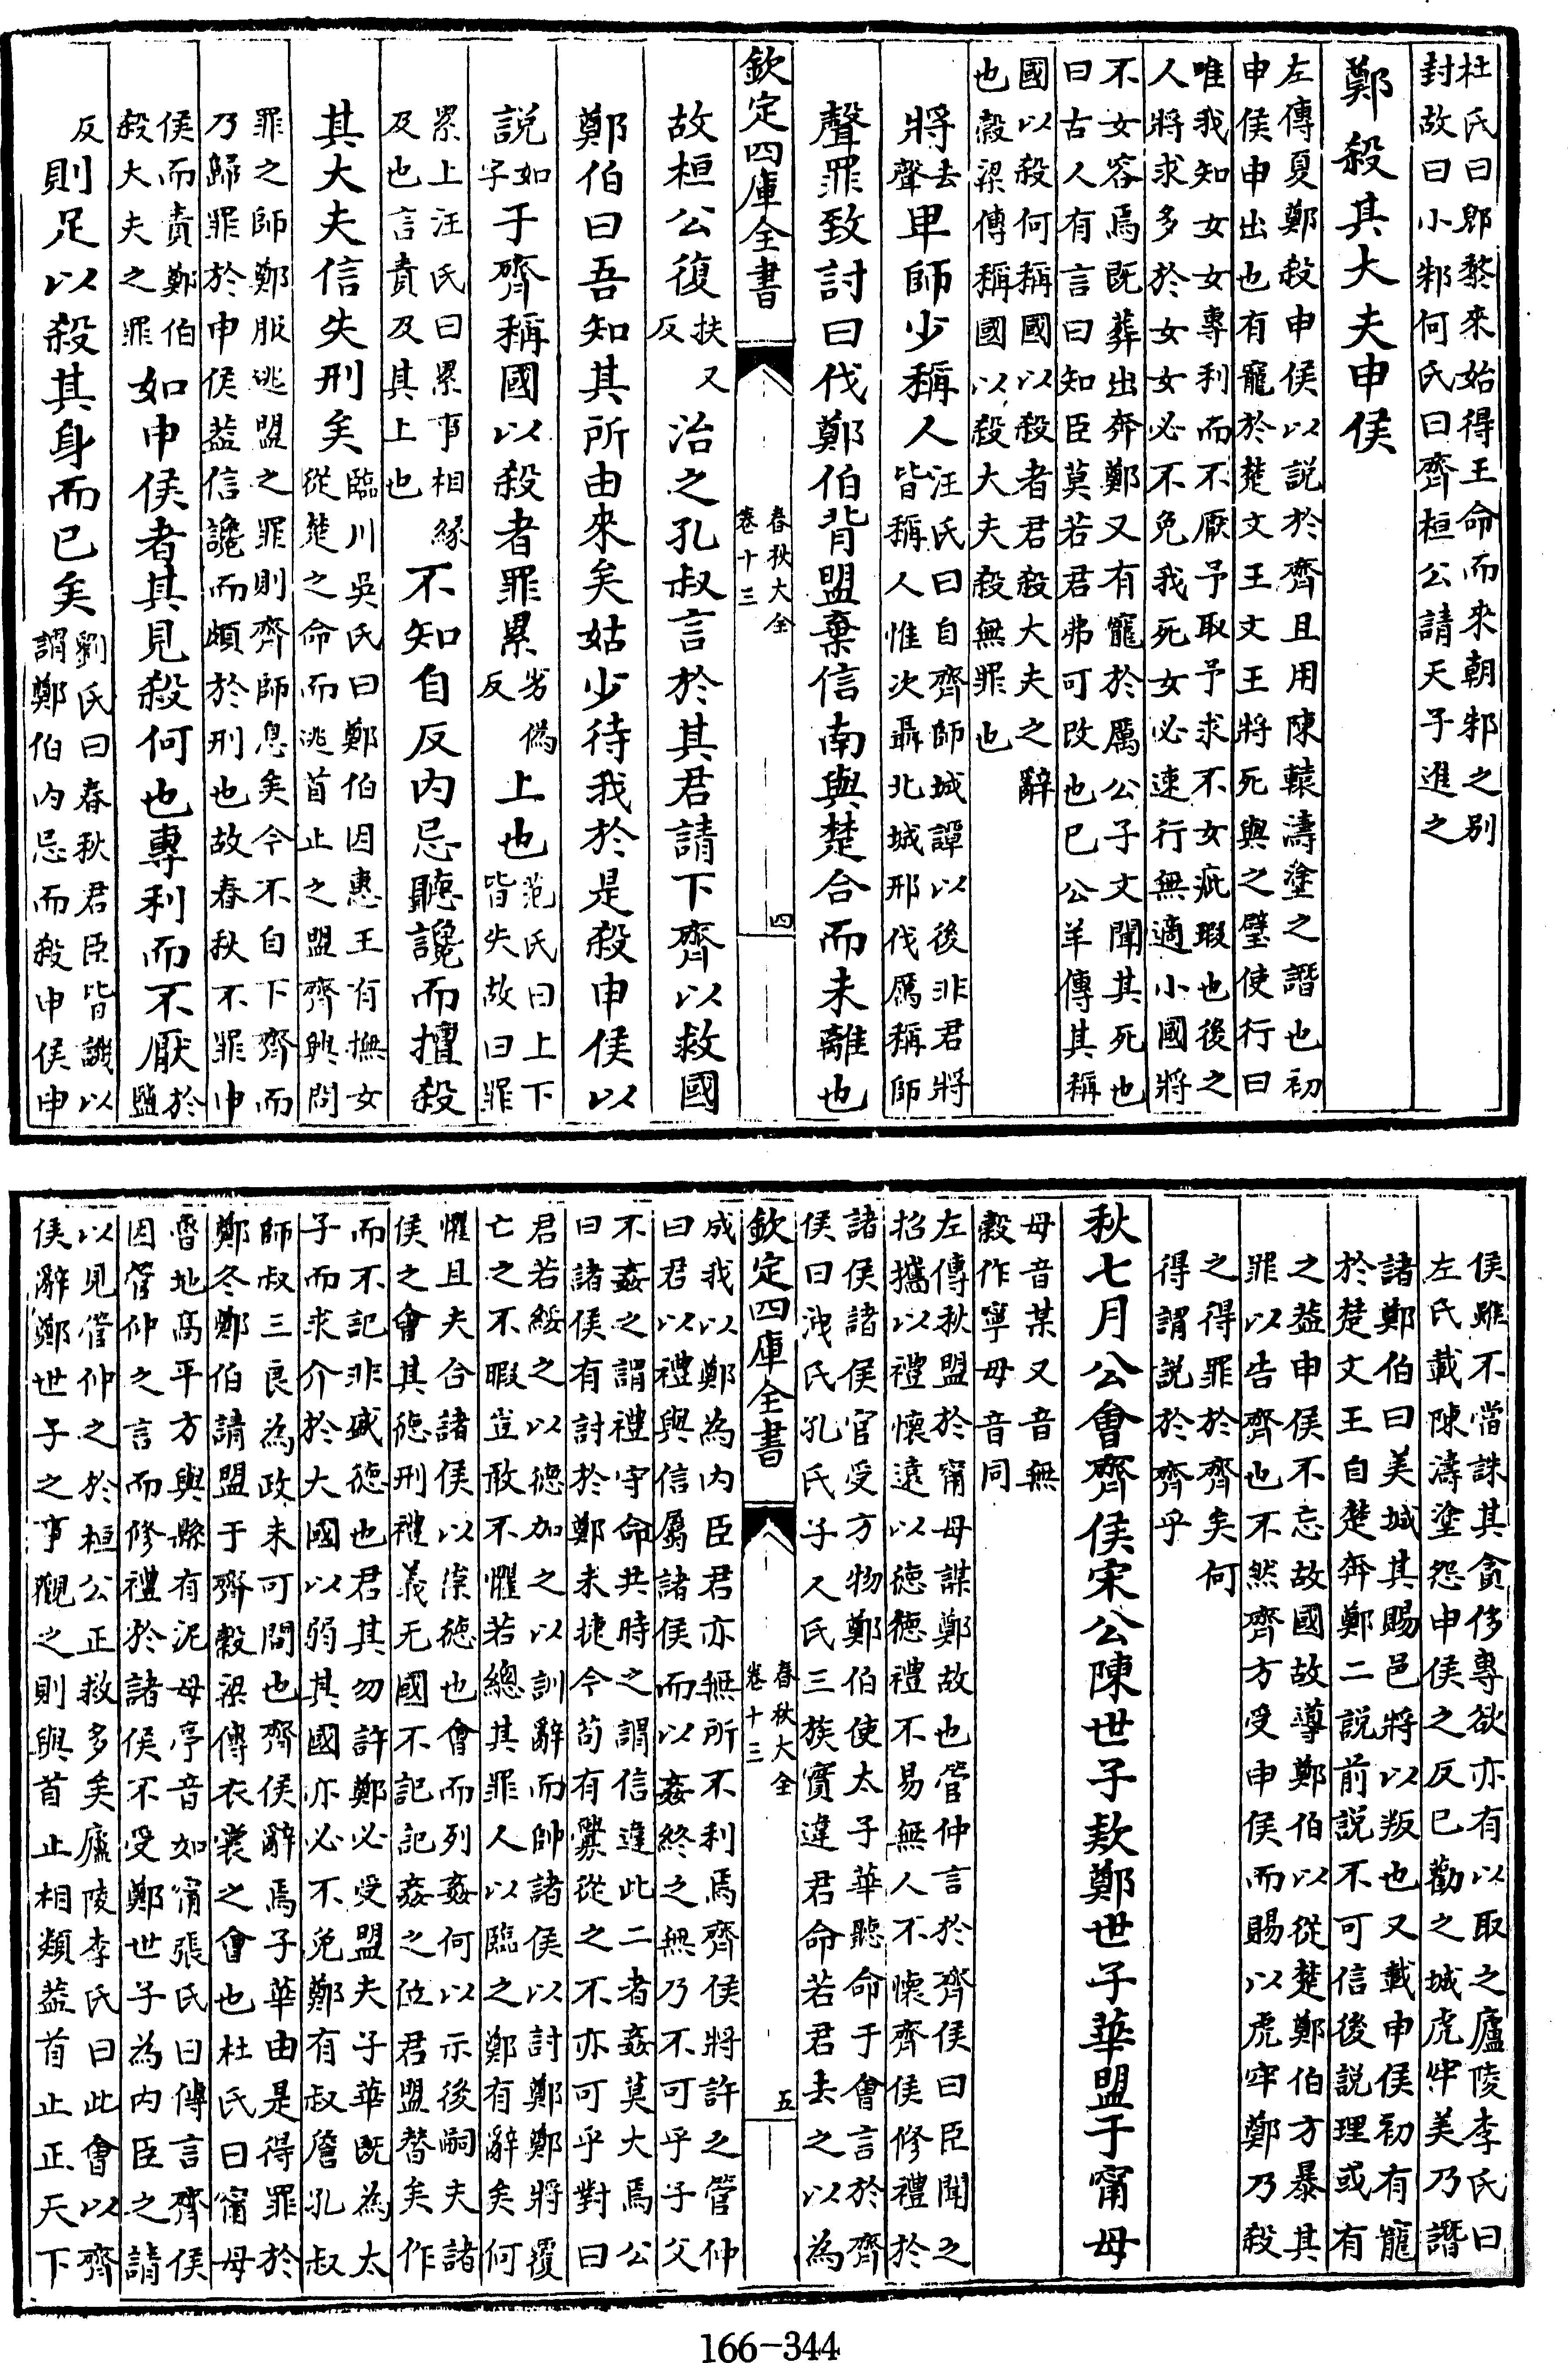 杜氏曰郳黎來始得王命而來朝邾之别
封故曰小邾何氏曰齊桓公請天子進之
鄭殺其大夫申侯
左傳夏鄭殺申侯以説於齊且用陳轅濤塗之譖也初
申侯申出也有寵於楚文王文王將死與之璧使行曰
唯我知女女專利而不厭予取予求不女疵瑕也後之
人將求多於女女必不免我死女必速行無適小國將
不女容焉既葬出奔鄭又有寵於厲公子文聞其死也
曰古人有言曰知臣莫若君弗可改也已公羊傳其稱
國以殺何稱國以殺者君殺大夫之辭
也穀梁傳稱國以殺大夫殺無罪也
將去聲卑師少稱人汪氏曰自齊師城譚以後非君將皆稱人惟次聶北城邢伐厲稱師
聲罪致討曰伐鄭伯背盟棄信南與楚合而未離也
欽定四庫全書 春秋大全 卷十三 四
故桓公復扶又反治之孔叔言於其君請下齊以救國
鄭伯曰吾知其所由來矣姑少待我於是殺申侯以
説如字于齊稱國以殺者罪累劣偽反上也范氏曰上下皆失故曰罪
累上汪氏曰累事相緣及也言責及其上也不知自反内忌聽讒而擅殺
其大夫信失刑矣臨川吳氏曰鄭伯因惠王有撫女從楚之命而逃首止之盟齊興問
罪之師鄭服逃盟之罪則齊師息矣今不自下齊而
乃歸罪於申侯葢信讒而頗於刑也故春秋不罪申
侯而責鄭伯殺大夫之罪如申侯者其見殺何也專利而不厭於鹽
反則足以殺其身而已矣劉氏曰春秋君臣皆譏以謂鄭伯内忌而殺申侯申
侯雖不當誅其貪侈專欲亦有以取之廬陵李氏曰
左氏載陳濤塗怨申侯之反已勸之城虎牢美乃譖
諸鄭伯曰美城其賜邑將以叛也又載申侯初有寵
於楚文王自楚奔鄭二説前説不可信後説理或有
之葢申侯不忘故國故導鄭伯以從楚鄭伯方暴其
罪以告齊也不然齊方受申侯而賜以虎牢鄭乃殺
之得罪於齊矣何
得謂説於齊乎
秋七月公會齊侯宋公陳世子款鄭世子華盟于甯母
母音某又音無
穀作寧母音同
左傳秋盟於甯母謀鄭故也管仲言於齊侯曰臣聞之
招攜以禮懷遠以德德禮不易無人不懷齊侯修禮於
諸侯諸侯官受方物鄭伯使太子華聽命于會言於齊
侯曰洩氏孔氏子人氏三族實違君命若君去之以為
欽定四庫全書 春秋大全 卷十三 五
成我以鄭為内臣君亦無所不利焉齊侯將許之管仲
曰君以禮與信屬諸侯而以姦終之無乃不可乎子父
不姦之謂禮守命共時之謂信違此二者姦莫大焉公
曰諸侯有討於鄭未捷今苟有釁從之不亦可乎對曰
君若綏之以德加之以訓辭而帥諸侯以討鄭鄭將覆
亡之不暇豈敢不懼若總其罪人以臨之鄭有辭矣何
懼且夫合諸侯以崇德也會而列姦何以示後嗣夫諸
侯之會其德刑禮義无國不記記姦之位君盟替矣作
而不記非盛德也君其勿許鄭必受盟夫子華既為太
子而求介於大國以弱其國亦必不免鄭有叔詹孔叔
師叔三良為政未可間也齊侯辭焉子華由是得罪於
鄭冬鄭伯請盟于齊穀梁傳衣裳之會也杜氏曰甯母
魯地高平方與縣有泥母亭音如甯張氏曰傳言齊侯
因管仲之言而修禮於諸侯不受鄭世子為内臣之請
以見管仲之於桓公正救多矣廬陵李氏曰此會以齊
侯辭鄭世子之事觀之則與首止相類葢首止正天下
166-344